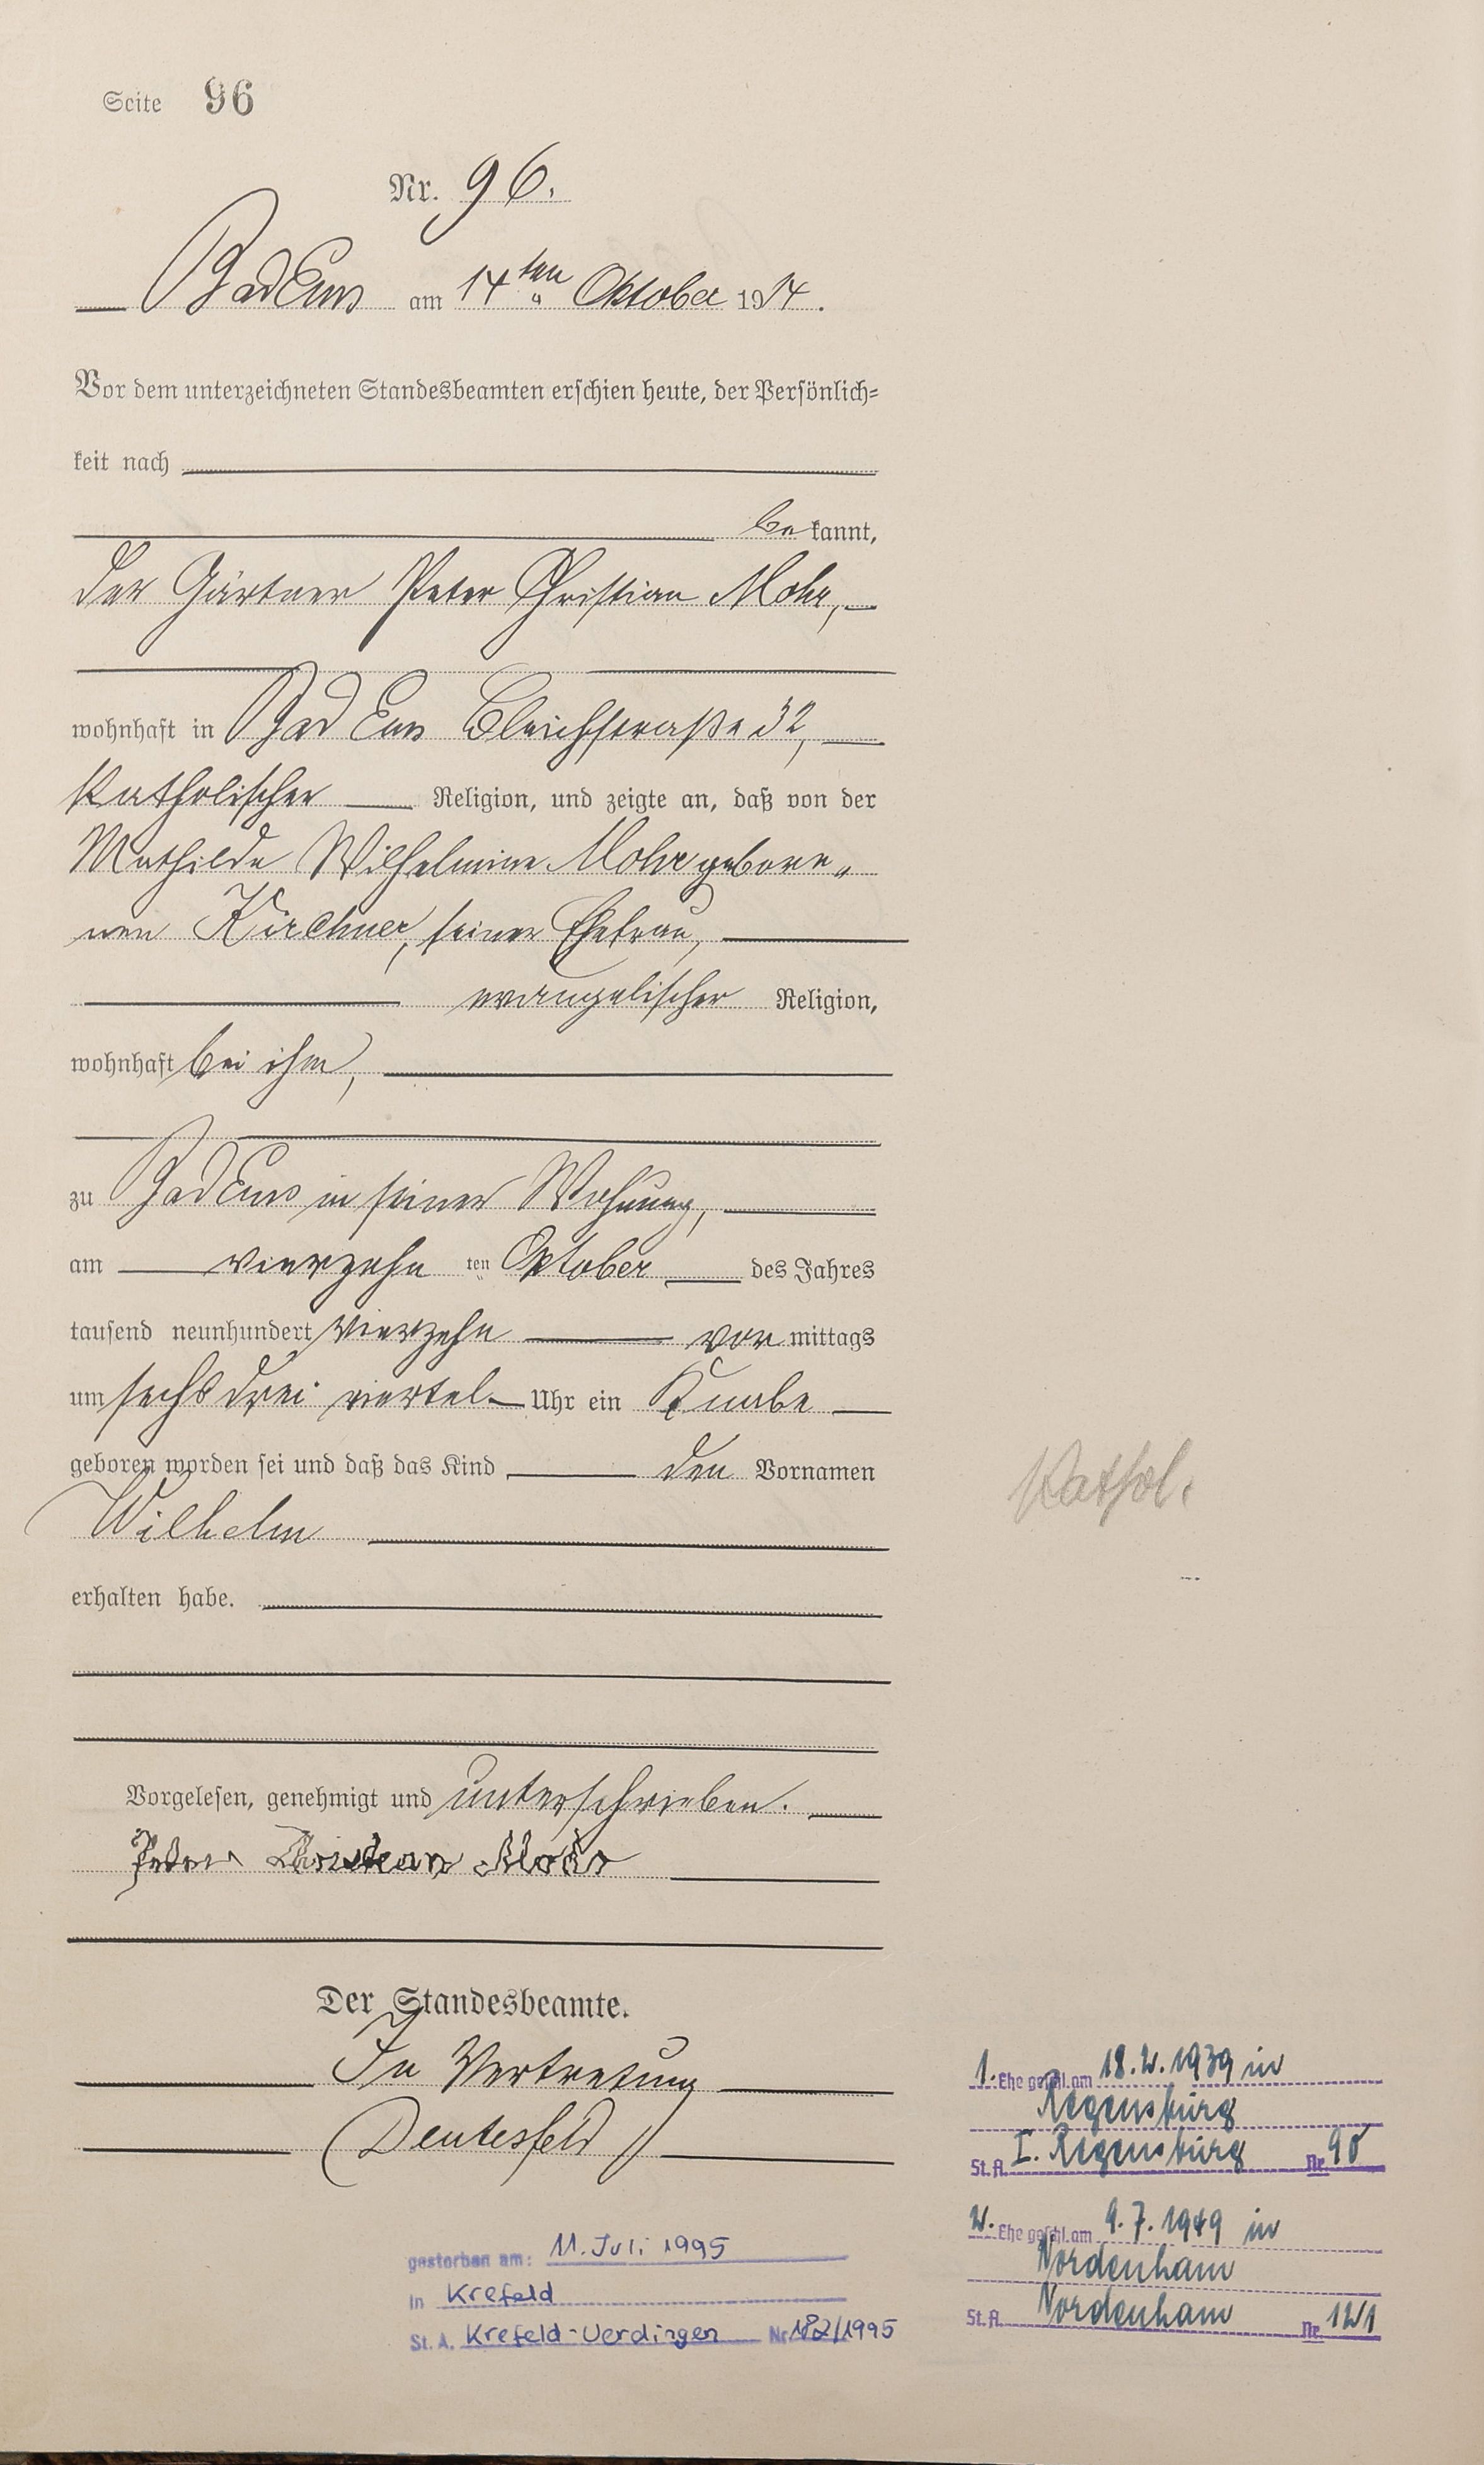 Seite 96
Nr. 96.
Bad Ems am 14ten Oktober 1914.
Vor dem unterzeichneten Standesbeamten erschien heute, der Persönlich=
keit nach
be kannt,
der Gärtner Peter Christian Mohr,
wohnhaft in Bad Ems Bleichstraße 32,
katholischer Religion, und zeigte an, daß von der
Mathilde Wilhelmine Mohr gebore„
nen Kirchner, seiner Ehefrau,
evangelischer Religion,
wohnhaft bei ihm,
zu Bad Ems in seiner Wohnung,
am vierzehn ten Oktober des Jahres
tausend neunhundert vierzehn vor mittags
um sechs drei viertel Uhr ein Knabe
geboren worden sei und daß das Kind den Vornamen
Wilhelm
erhalten habe.
Kathol.
Vorgelesen, genehmigt und unterschrieben.
Peter Christian Mohr
Der Standesbeamte.
In Vertretung
Deutesfeld
1. Ehe geschl. am 18.2.1939 in
Regensburg
St.A. I. Regensburg Nr. 90
2. Ehe geschl. am 9.7.1949 in
Nordenham
St.A. Nordenham Nr. 121
gestorben am: 11. Juli 1995
in Krefeld
St. A. Krefeld-Uerdingen Nr. 182/1995